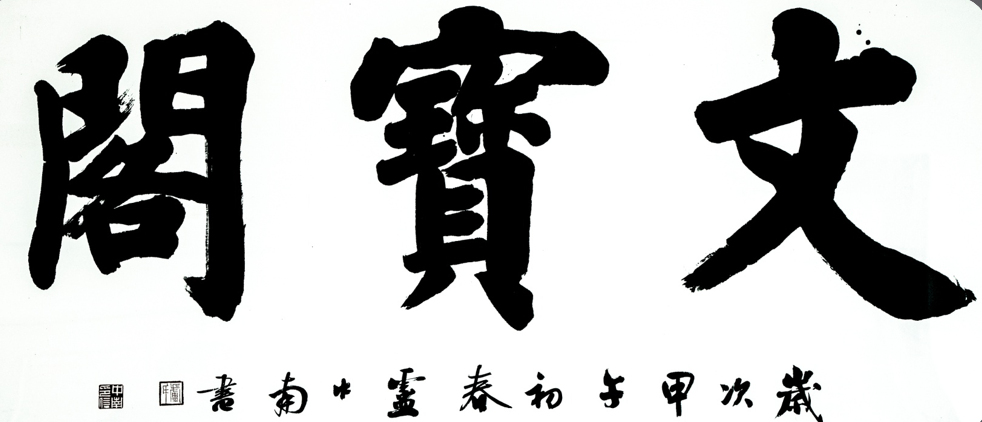 文寶閣
歲次甲午初春靈中南書